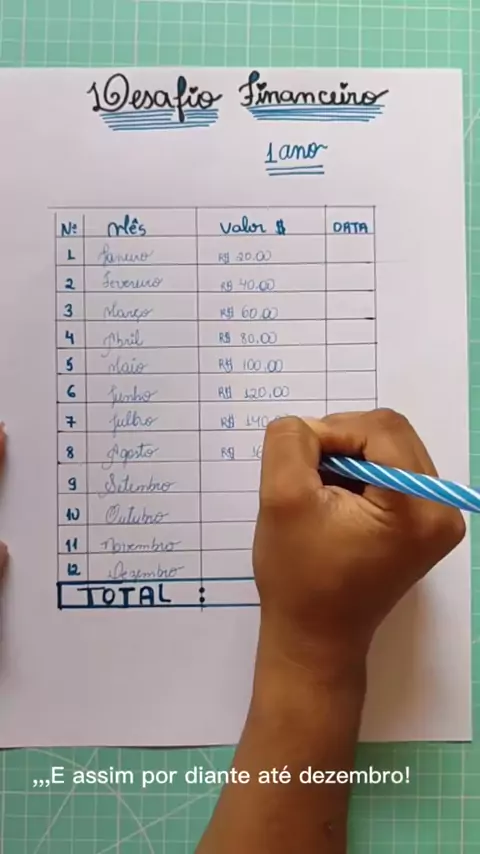 Desafio Financeiro
1 ano
Nº Mês Valor $ DATA
1 Janeiro R$ 20,00
2 Fevereiro R$ 40,00
3 Março R$ 60,00
4 Abril R$ 80,00
5 Maio R$ 100,00
6 Junho R$ 120,00
7 Julho R$ 140
8 Agosto R$ 16
9 Setembro
10 Outubro
11 Novembro
12 Dezembro
TOTAL :
,,,E assim por diante até dezembro!